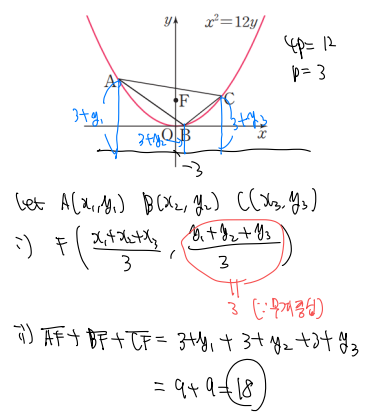 y x²=12y
4p= 12
p= 3
A F C
3+y₁ 3+y₂ 3+y₃
O B x
-3
let A(x₁,y₁) B(x₂,y₂) C(x₃,y₃)
i) F( (x₁+x₂+x₃)/3 , (y₁+y₂+y₃)/3 )
=
3 (∵무게중심)
ii) A̅F̅+B̅F̅+C̅F̅= 3+y₁+3+y₂+3+y₃
= 9+9=18